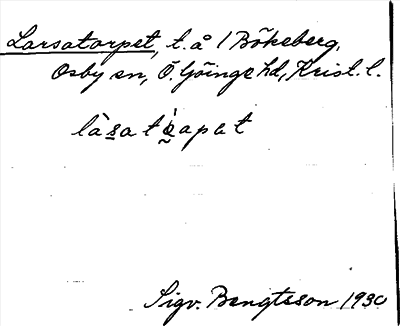 Larsatorpet, t. å 1 Bökeberg,
Osby sn, Ö. Göinge hd, Krist. l.
Sigv. Bengtsson 1930